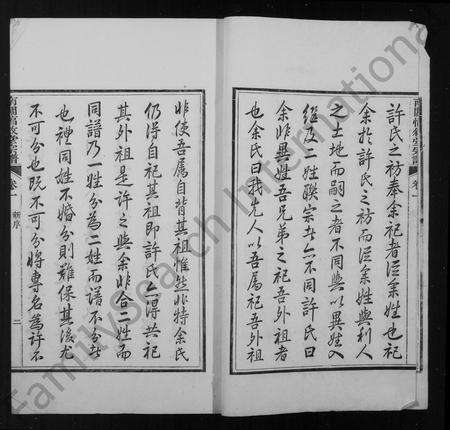 許氏之祊奉余祀者從余姓也祀
余於許氏之祊而從余姓與利人
之土地而嗣之者不同與以異姓入
繼及二姓聯宗者亦不同許氏曰
余非異姓吾兄弟之祀吾外祖者
也余氏曰我先人以吾屬祀吾外祖
非使吾屬自背其祖雖然非特余氏
仍得自祀其祖即許氏亦得共祀
其外祖是許之與余非合二姓而
同譜乃一姓分為二姓而譜不分者
也禮同姓不婚分則難保其後允
不可分也既不可分將專名為許不
卷一
新序
二
FamilySearch International